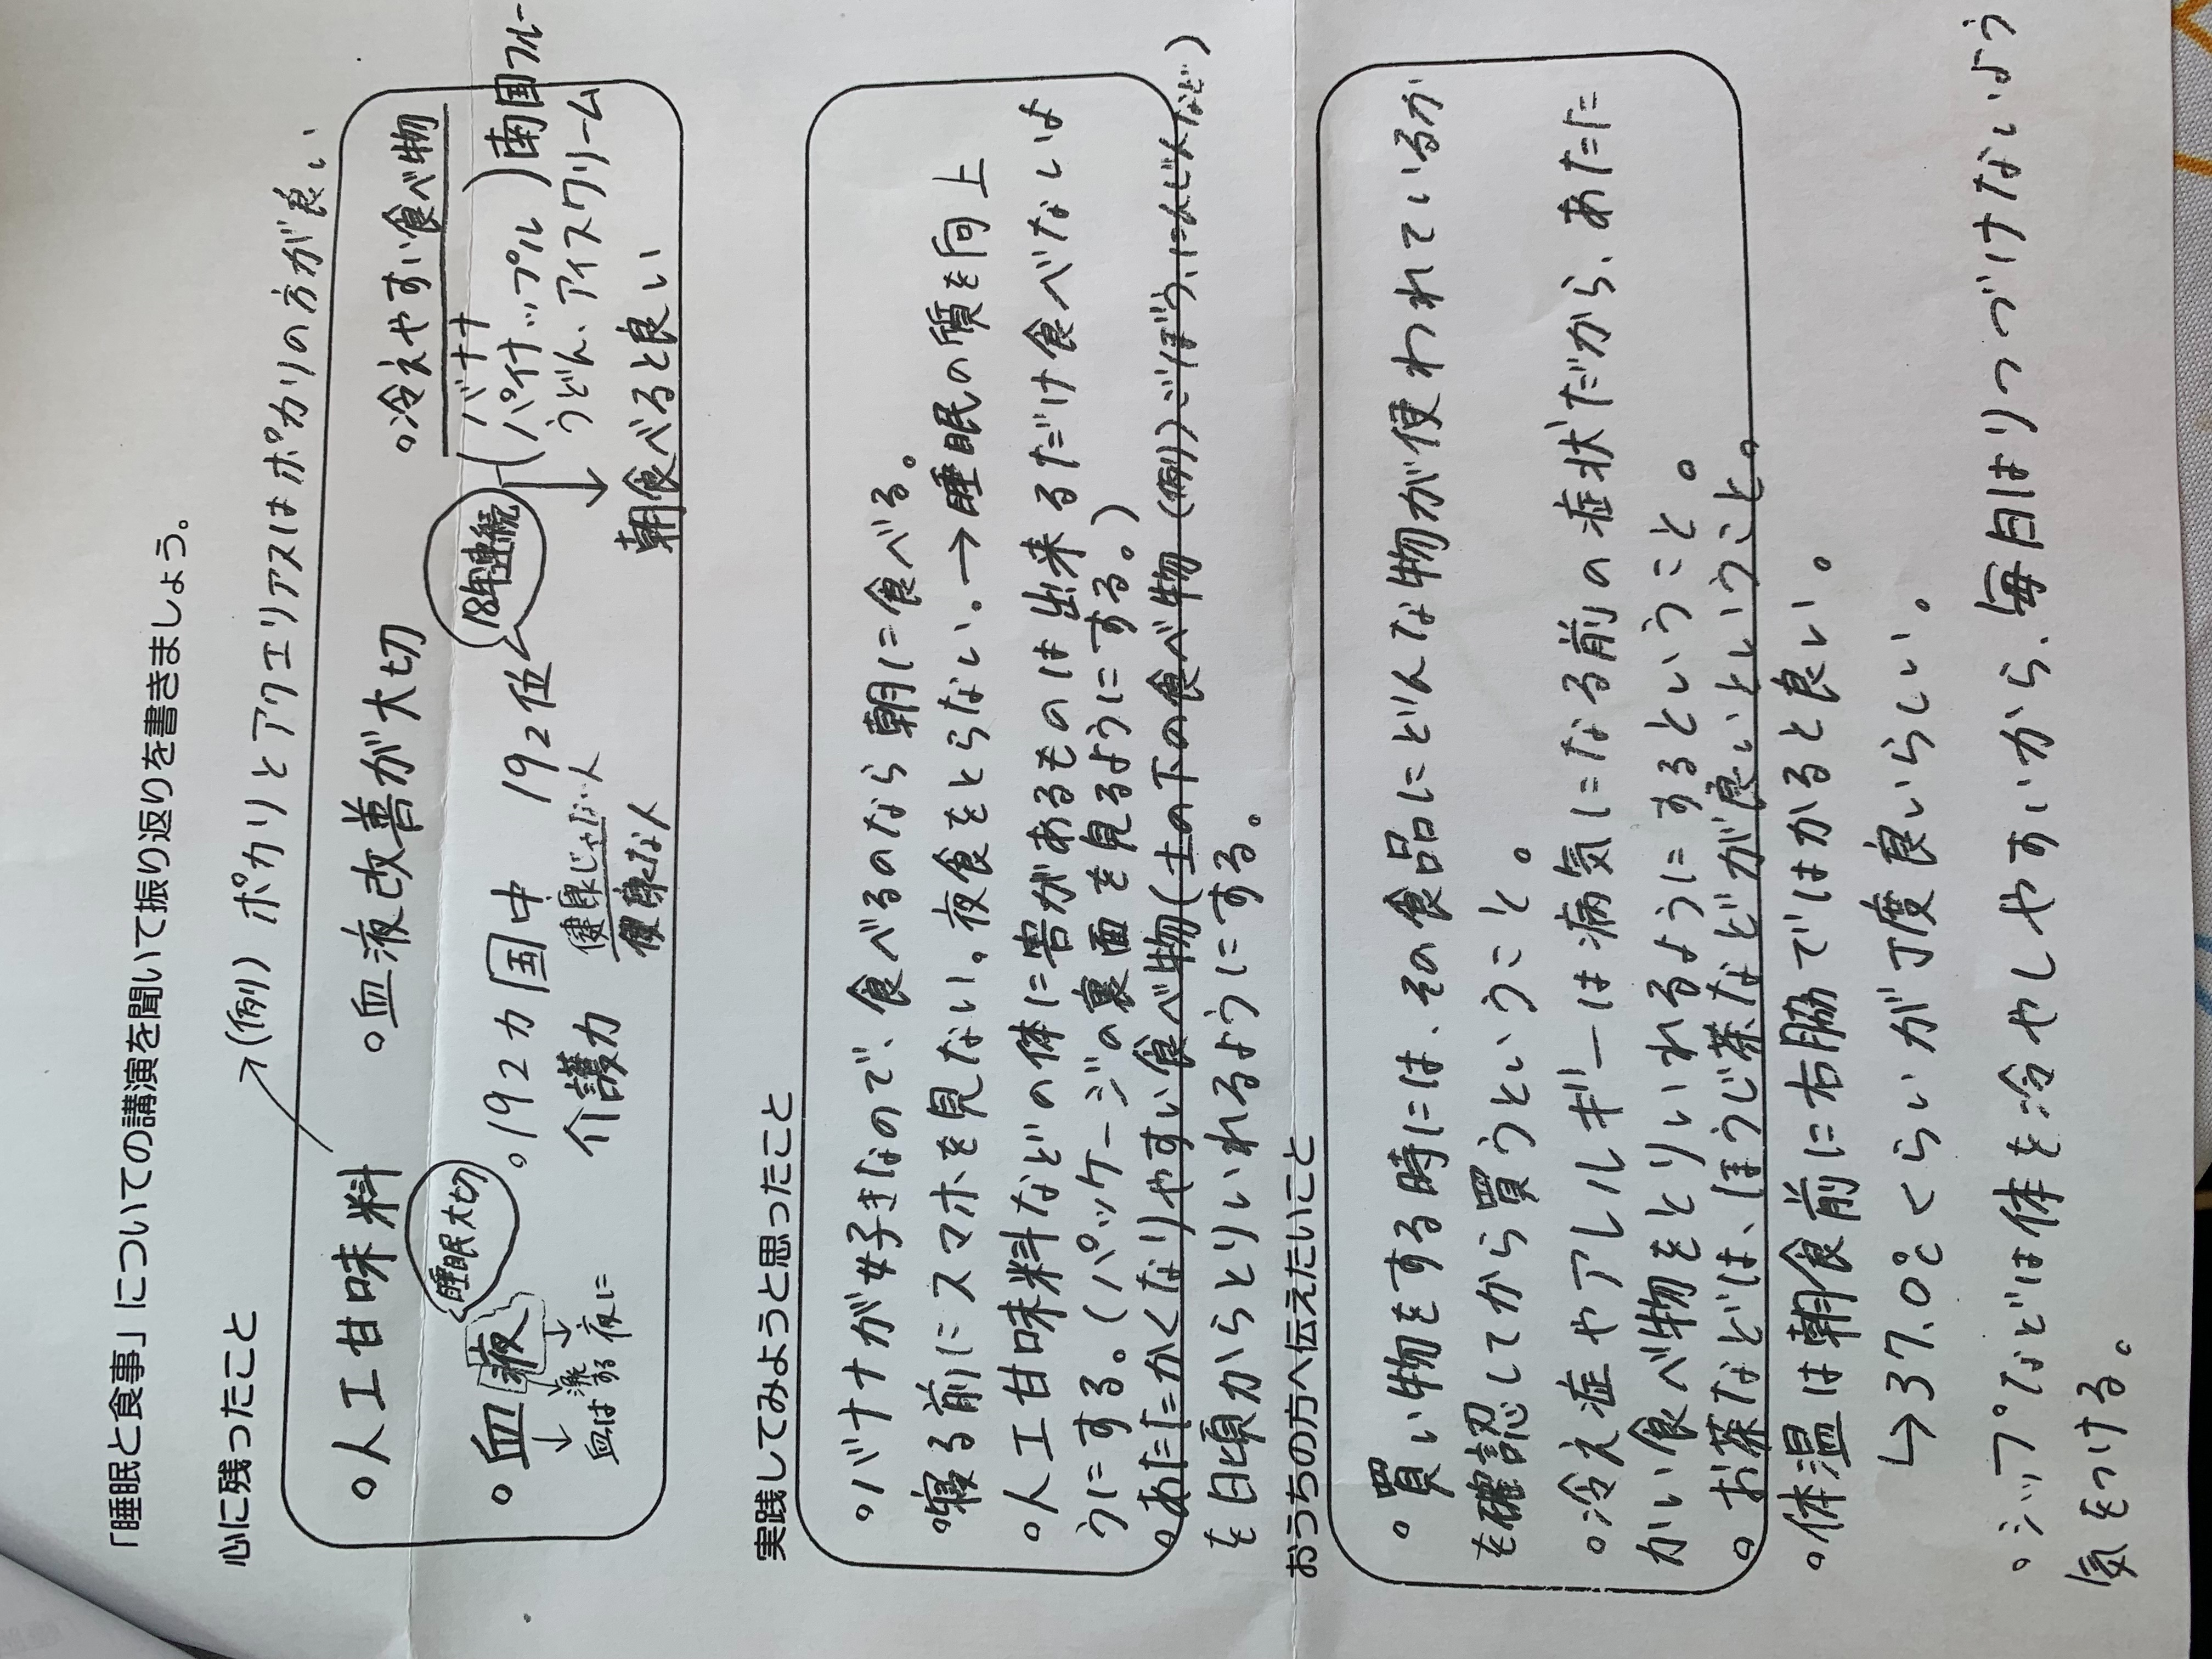 「睡眠と食事」についての講演を聞いて振り返りを書きましょう。
心に残ったこと
→(例) ポカリとアクエリアスはポカリの方が良い
。人工甘味料 。血液改善が大切 。冷えやすい食べ物
睡眠大切
18年連続
。血液 。192カ国中 192位
(バナナ
パイナップル) 南国フルー
うどん、アイスクリーム
介護力 健康じゃない人
健康な人
血は 夜に
朝食べると良い
実践してみようと思ったこと
。バナナが好きなので、食べるのなら朝に食べる。
。寝る前にスマホを見ない。夜食をとらない。→睡眠の質を向上
。人工甘味料などの体に害があるものは出来るだけ食べないよ
うにする。(パッケージの裏面を見るようにする。)
。あたたかくなりやすい食べ物(土の下の食べ物(例)ごぼう、にんじんなど)
を日頃からとりいれるようにする。
おうちの方へ伝えたいこと
。買い物をする時には、その食品にどんな物が使われているか
を確認してから買うということ。
。冷え症やアレルギーは病気になる前の症状だから、あたた
かい食べ物をとりいれるようにするということ。
。お茶などは、ほうじ茶などが良いということ。
。体温は朝食前に右脇ではかると良い。
↳37.0℃くらいが丁度良いらしい。
。シップなどは体を冷やしやすいから、毎日はりつづけないよう
気をつける。